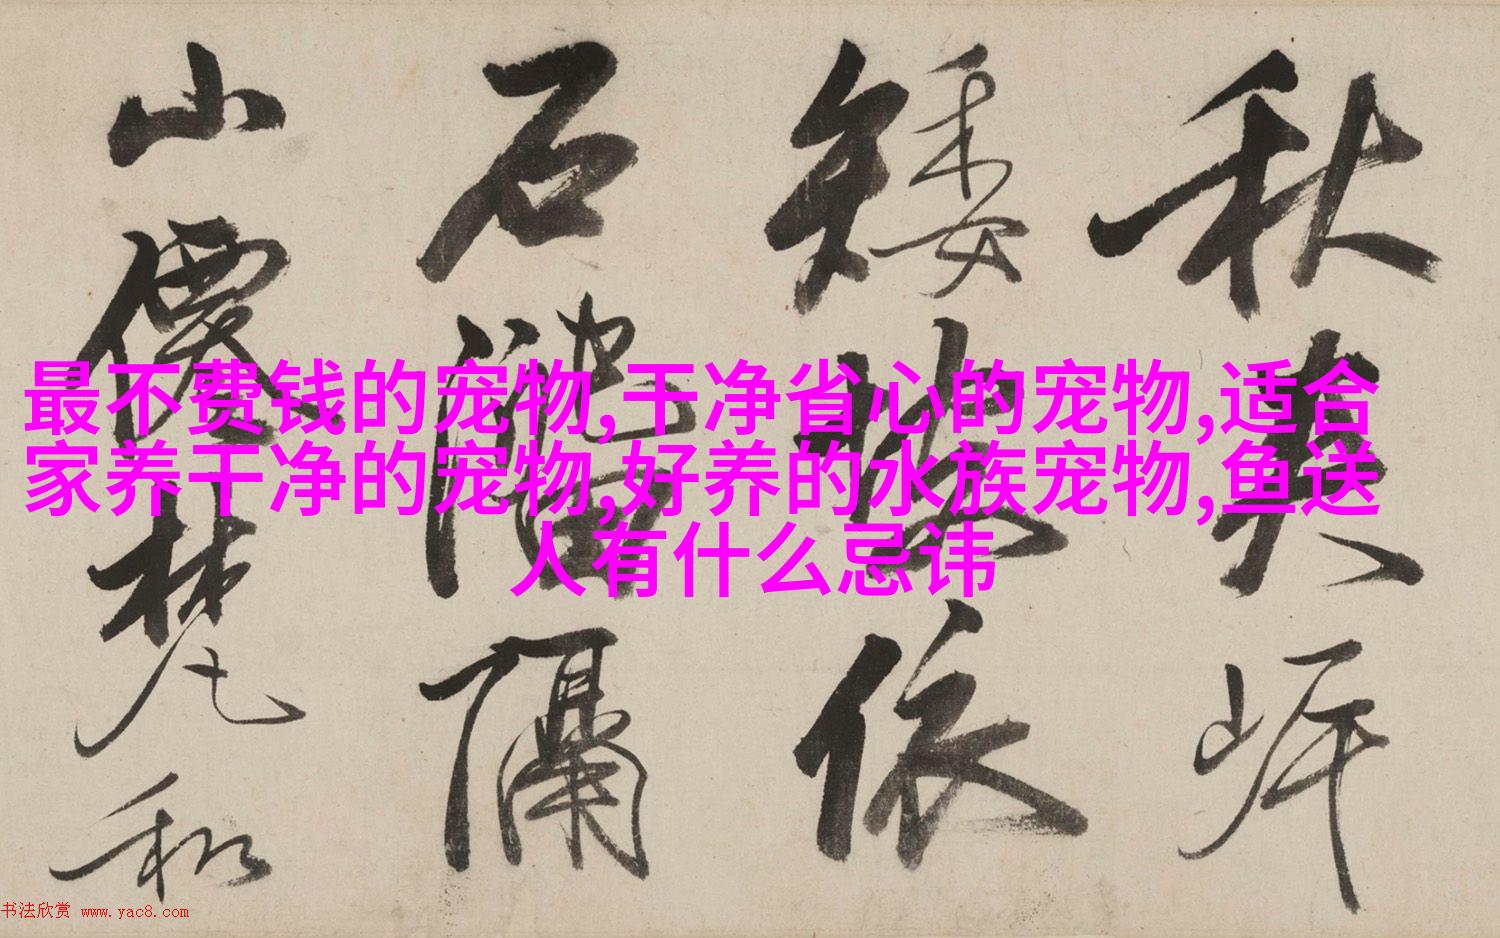 最不费钱的宠物,干净省心的宠物,适合
家养干净的宠物,好养的水族宠物,鱼送
人有什么忌讳
秋
矮依
石隔
山僊梵和
书法欣赏 www.yac8.com